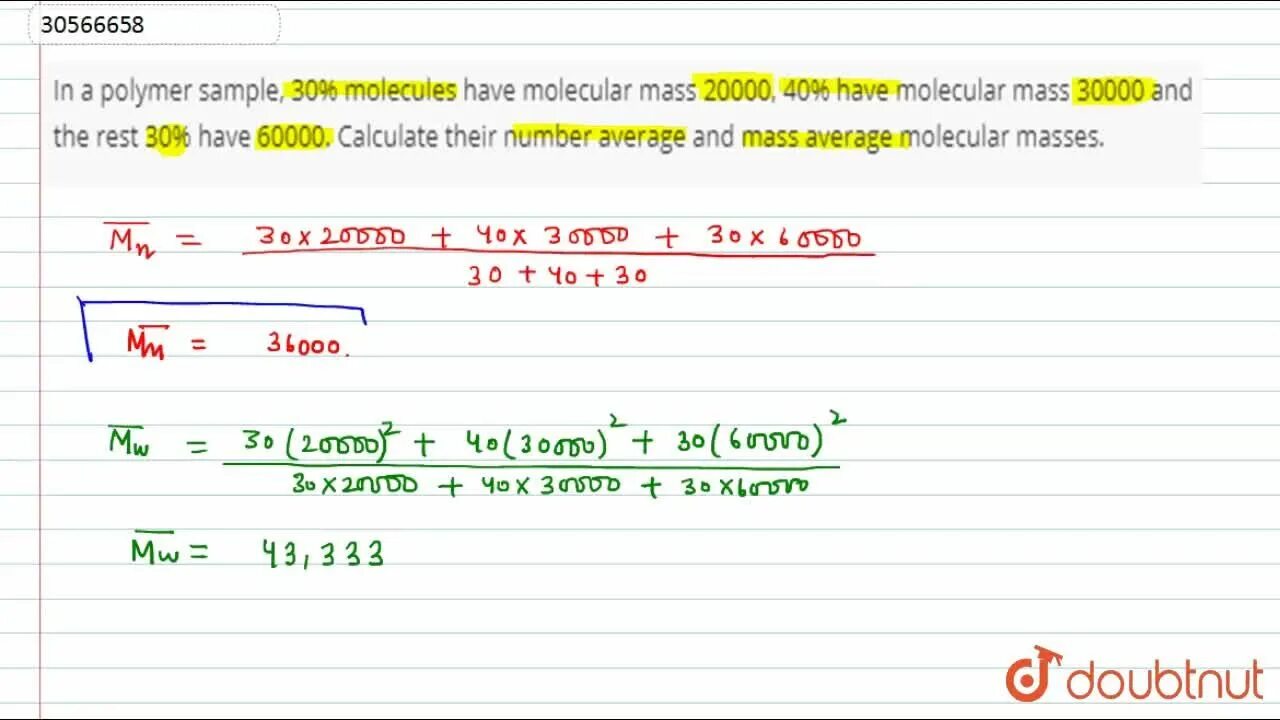 30566658
In a polymer sample, 30% molecules have molecular mass 20000, 40% have molecular mass 30000 and
the rest 30% have 60000. Calculate their number average and mass average molecular masses.
M̅n = 30 × 20000 + 40 × 30000 + 30 × 60000
30 + 40 + 30
M̅n = 36000.
M̅w = 30 (20000)² + 40 (30000)² + 30 (60000)²
30 × 20000 + 40 × 30000 + 30 × 60000
M̅w = 43,333
doubtnut